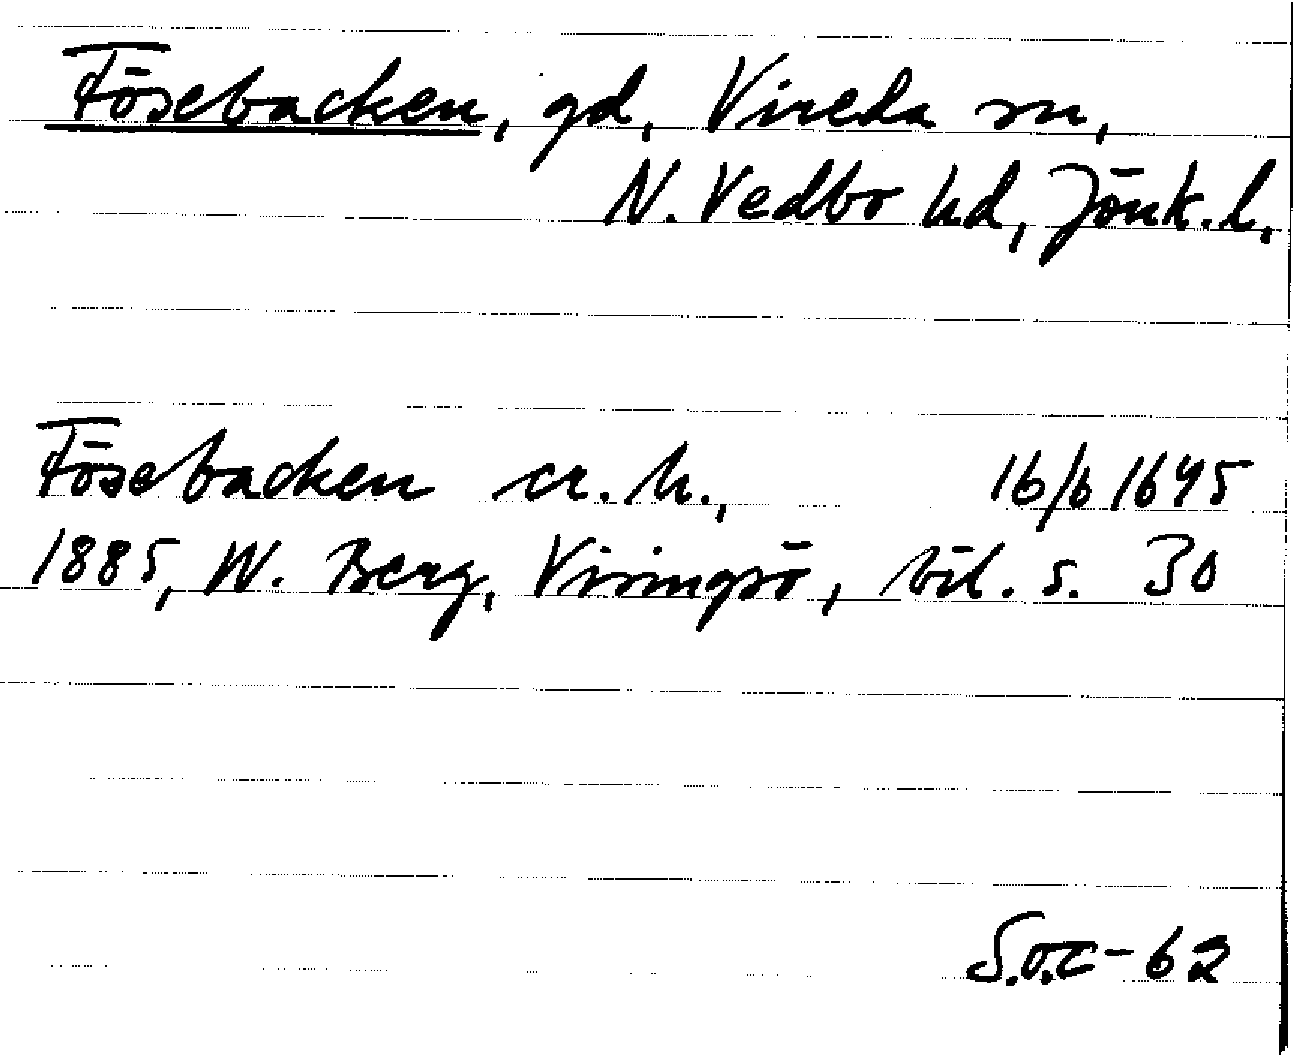 Fösebacken, gd, Vireda sn,
N. Vedbo hd, Jönk. l.
Fösebacken cr. h., 16/6 1645
1885, W. Berg, Visingsö, bil. s. 30
S.O.C-62